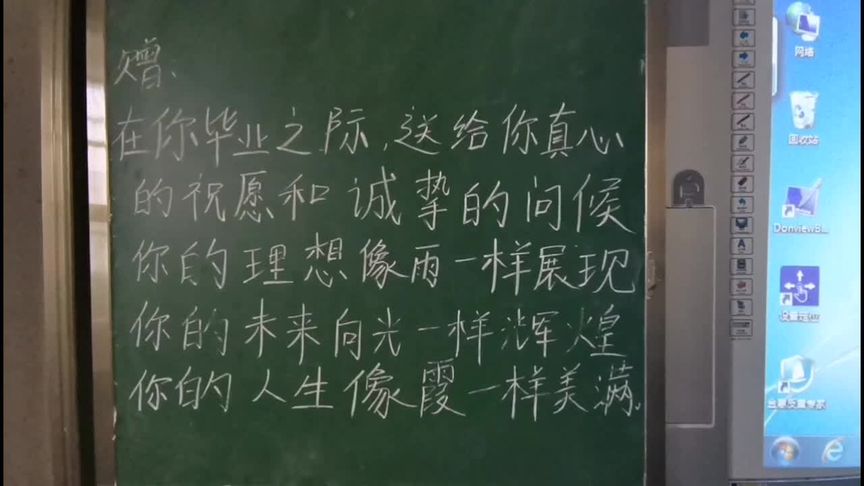 在你毕业之际,送给你真心
的祝愿和诚挚的问候
你的理想像雨一样展现
你的未来向光一样辉煌
你的人生像霞一样美满.
网络
回收站
DonviewB...
设置定位